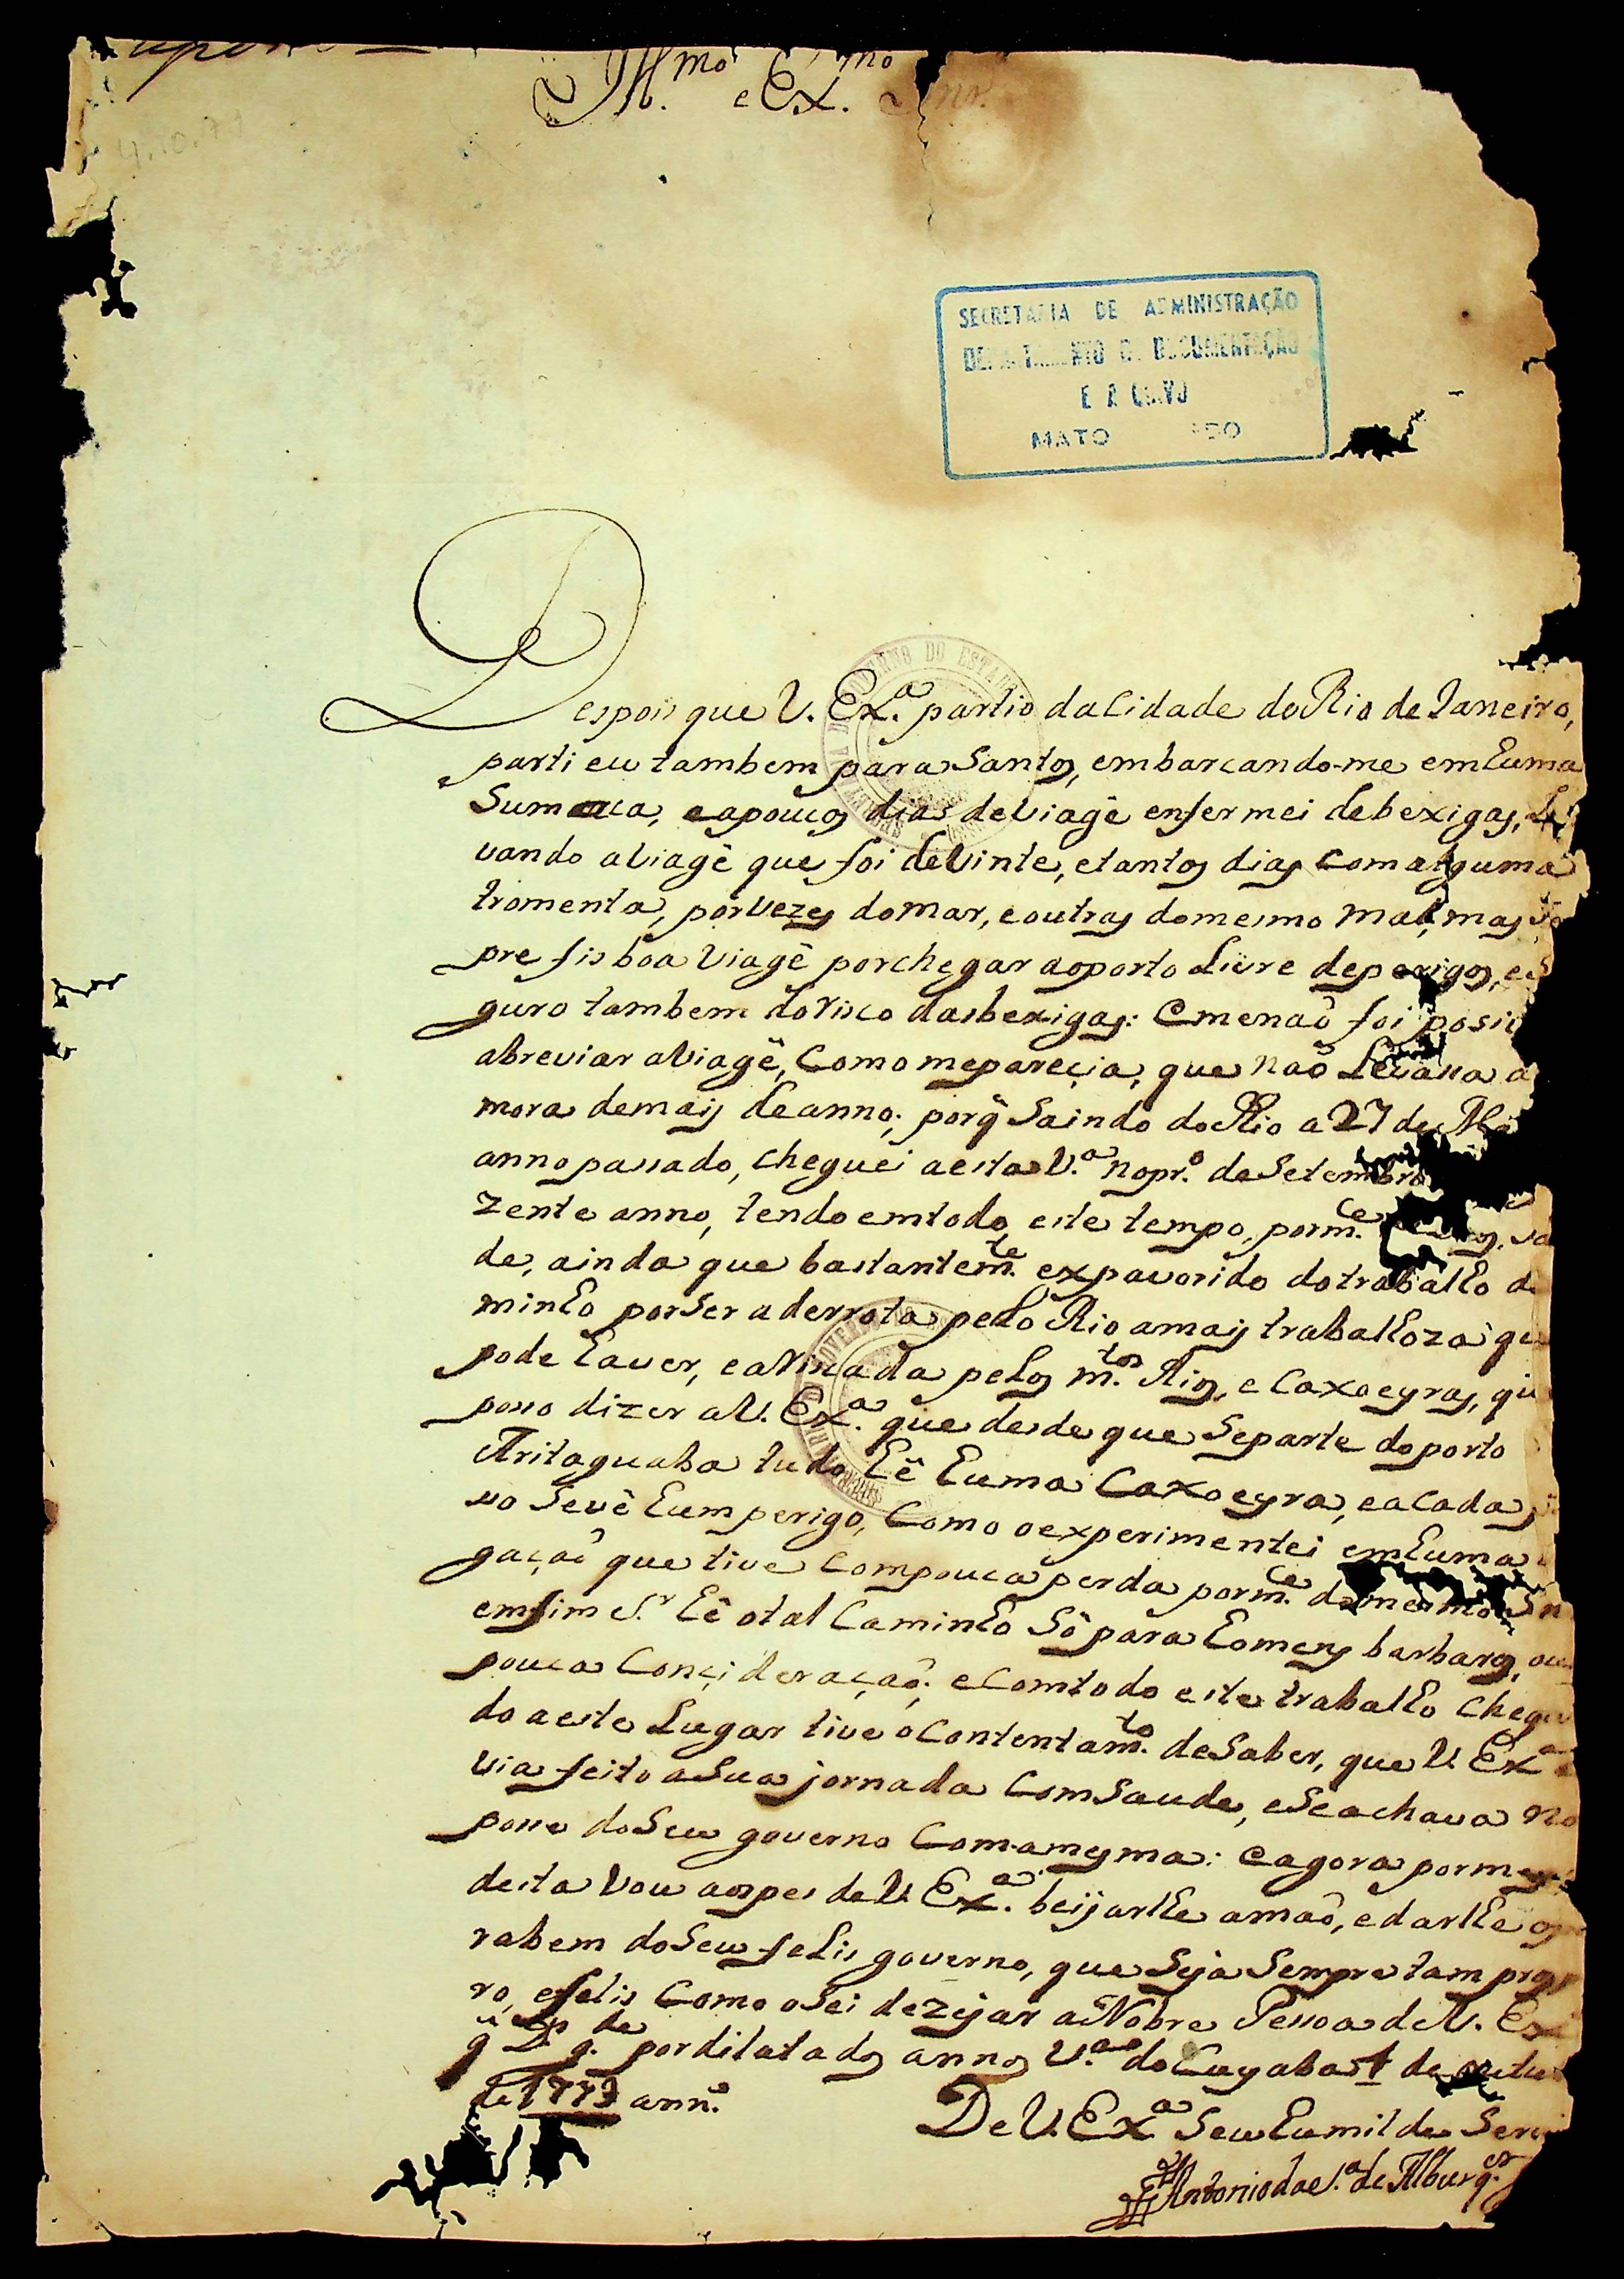 Ill.mo e Ex.mo Snr.
SECRETARIA DE ADMINISTRAÇÃO
DEPARTAMENTO DE DOCUMENTAÇÃO
E ARQUIVO
MATO
Despois que V. Ex.a partio da Cidade do Rio de Janeiro,
parti eu tambem para Santos, embarcando-me em huma
Sumaca, e a poucos dias de viagẽ enfermei de bexigas, Le
vando a viagẽ que foi de vinte, e tantos dias com alguma
tromenta, por vezes do mar, e outras do mesmo mal, mas
pre fis boa viagẽ por chegar ao porto Livre de perigos, e
guro tambem do risco das bexigas: E me naõ foi posi
abreviar a viagẽ, como me pareçia, que naõ Levava a
mora de mais de anno; porq̃ saindo do Rio a 27 de
anno passado, cheguei a esta V.a no pr.o de Setembro
zente anno, tendo em todo este tempo, por m.ce
de, ainda que bastantem.te expavorido do trabalho
minho por ser a derrota pelo Rio a mais trabalhoza que
pode haver, e arriscada pelos m.tos Rios, e Caxoeyras, qu
posso dizer a V. Ex.a que desde que se parte do porto
Aritaguaba tudo hê huma Caxoeyra, e a cada
so se vê hum perigo, como o experimentei em huma
gaçaõ que tive com pouca perda por m.ce do mesmo Sn
em fim S.r hê o tal Caminho sô para homens barbaros, ou
pouca Conçideraçaõ; e com todo este trabalho chega
do a este Lugar tive o Contentam.to de saber, que V. Ex.a
via feito a sua jornada com saude, e se achava na
posse do seu governo com a mesma: e agora por me
desta vou aos pes de V. Ex.a beijarlhe a maõ, e darlhe os
rabem do seu felis governo, que seja sempre tam prosp
ro, e felis como o sei dezejar a Nobre Pessoa de V. Ex
q̃ D.s g.de por dilatados annos V.a do Cuyaba 1 de
de 1773 ann.s
De V. Ex.a Seu humilde Serv
Antonio da S.a de Alburq.er